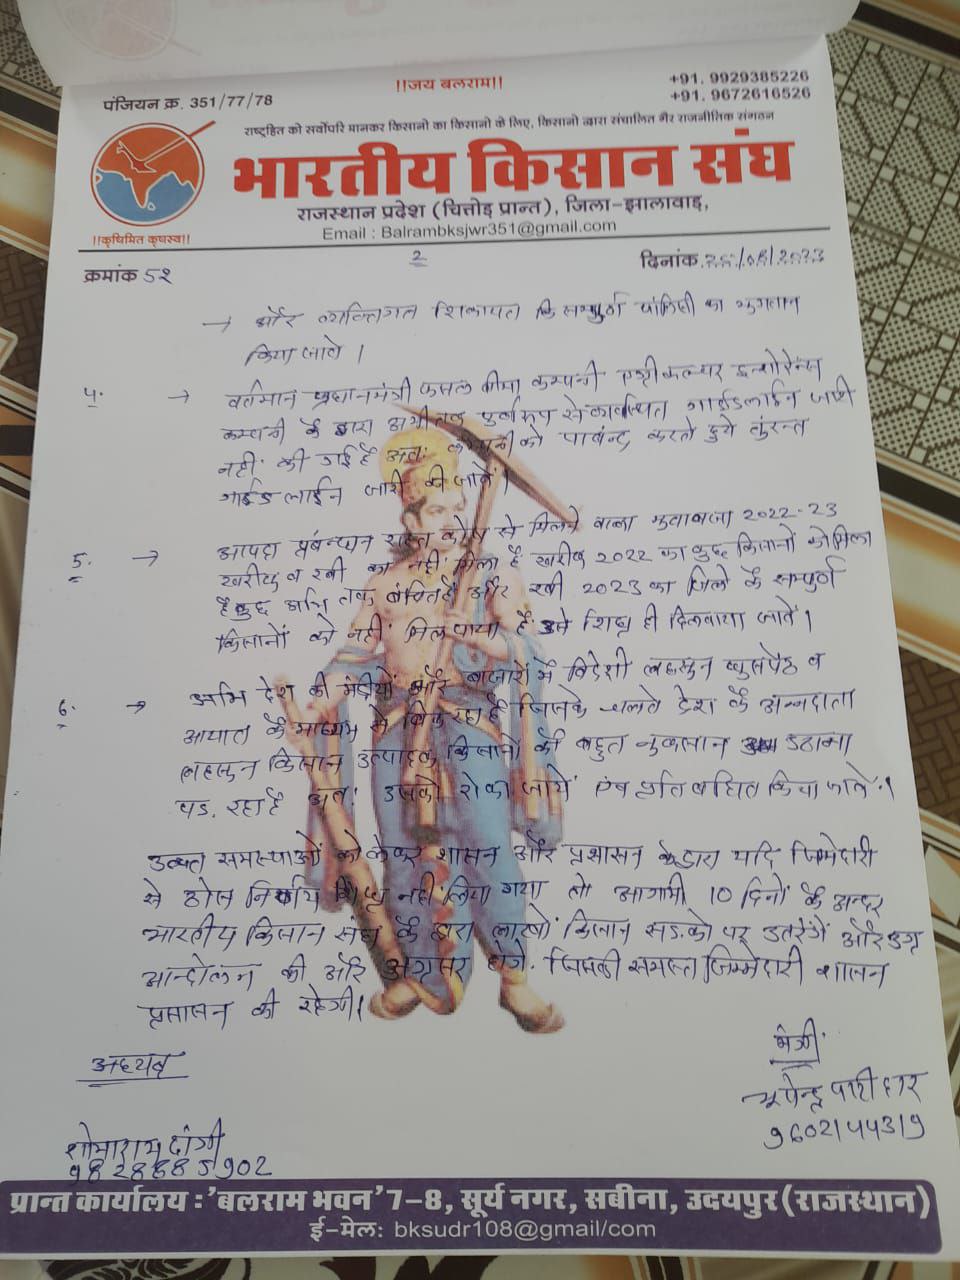 !!जय बलराम!!
पंजियन क्र. 351/77/78
+91. 9929385226
+91. 9672616526
राष्ट्रहित को सर्वोपरि मानकर किसानो का किसानो के लिए, किसानो द्वारा संचालित गैर राजनीतिक संगठन
भारतीय किसान संघ
राजस्थान प्रदेश (चित्तोड़ प्रान्त), जिला-झालावाड़,
Email : Balrambksjwr351@gmail.com
!!कृषिमित कृषस्व!!
क्रमांक 52
2
दिनांक /08/2023
→ और व्यक्तिगत शिकायत कि सम्पुर्ण पॉलिसी का भुगतान
किया जावे ।
4. → वर्तमान प्रधानमंत्री फसल बीमा कम्पनी एग्रीकल्चर इन्शोरेन्स
कम्पनी के द्वारा अभी तक पुर्णरूप से गाईडलाईन जारी
नहीं की गई है अतः कम्पनी को पाबंन्द करते हुये तुंरन्त
गाईड लाईन जारी की जावें ।
5. → आपदा प्रंबन्धन राहत कोष से मिलने वाला मुवाबजा 2022-23
खरीफ व रबी का नहीं मिला है खरीफ 2022 का कुछ किसानों को मिला
है कुछ अभि तक वंचित है और रबी 2023 का जिले के सम्पुर्ण
किसानों को नहीं मिल पाया है उसे शिघ्र ही दिलवाया जावें ।
6. → अभि देश की मंडीयों और बाजारों में विदेशी लहसुन घुसपैठ व
आयात के माध्यम से बिक रहा है जिसके चलते देश के अन्नदाता
लहसुन किसान उत्पादक किसानों को बहुत नुकसान उठाना
पड़ रहा है अतः उसको रोका जायें एंव प्रतिबंधित किया जावे ।
उक्त समस्याओं को लेकर शासन और प्रशासन के द्वारा यदि जिमेदारी
से ठोस निर्णय शिघ्र नहीं लिया गया तो आगामी 10 दिनों के अन्दर
भारतीय किसान संघ के द्वारा लाखों किसान सड़को पर उतरेंगे और उग्र
आन्दोलन की और अग्रसर होगे. जिसकी समस्त जिम्मेदारी शासन
प्रसासन की रहेगी।
अध्यक्ष
मंत्री
भूपेन्द्र पाटीदार
9602144319
शोभाराम दांगी
9828885902
प्रान्त कार्यालय : 'बलराम भवन' 7-8, सूर्य नगर, सबीना, उदयपुर (राजस्थान)
ई-मेलः bksudr108@gmail/com